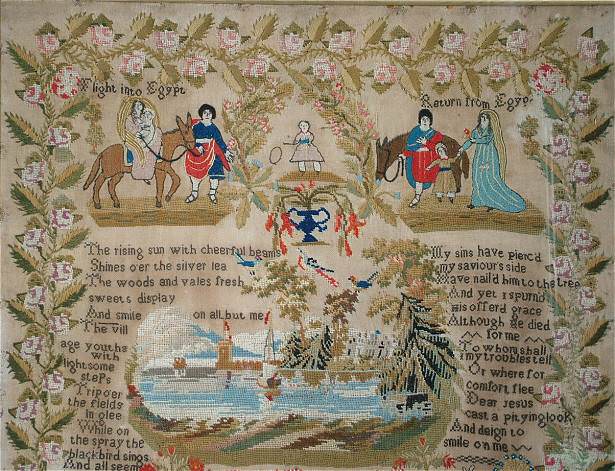 Flight into Egypt
Return from Egyp
The rising sun with cheerful beams
Shines o'er the silver lea
The woods and vales fresh
sweets display
And smile on all but me
The vill
age youths
with
lightsome
steps
Trip o'er
the fields
in glee
While on
the spray the
blackbird sings
And all seems
My sins have pierc'd
my saviour's side
Have nail'd him to the tree
And yet I spurn'd
His offer'd grace
Although He died
for me
To whom shall
I my troubles tell
Or where for
comfort flee
Dear Jesus
cast a pitying look
And deign to
smile on me